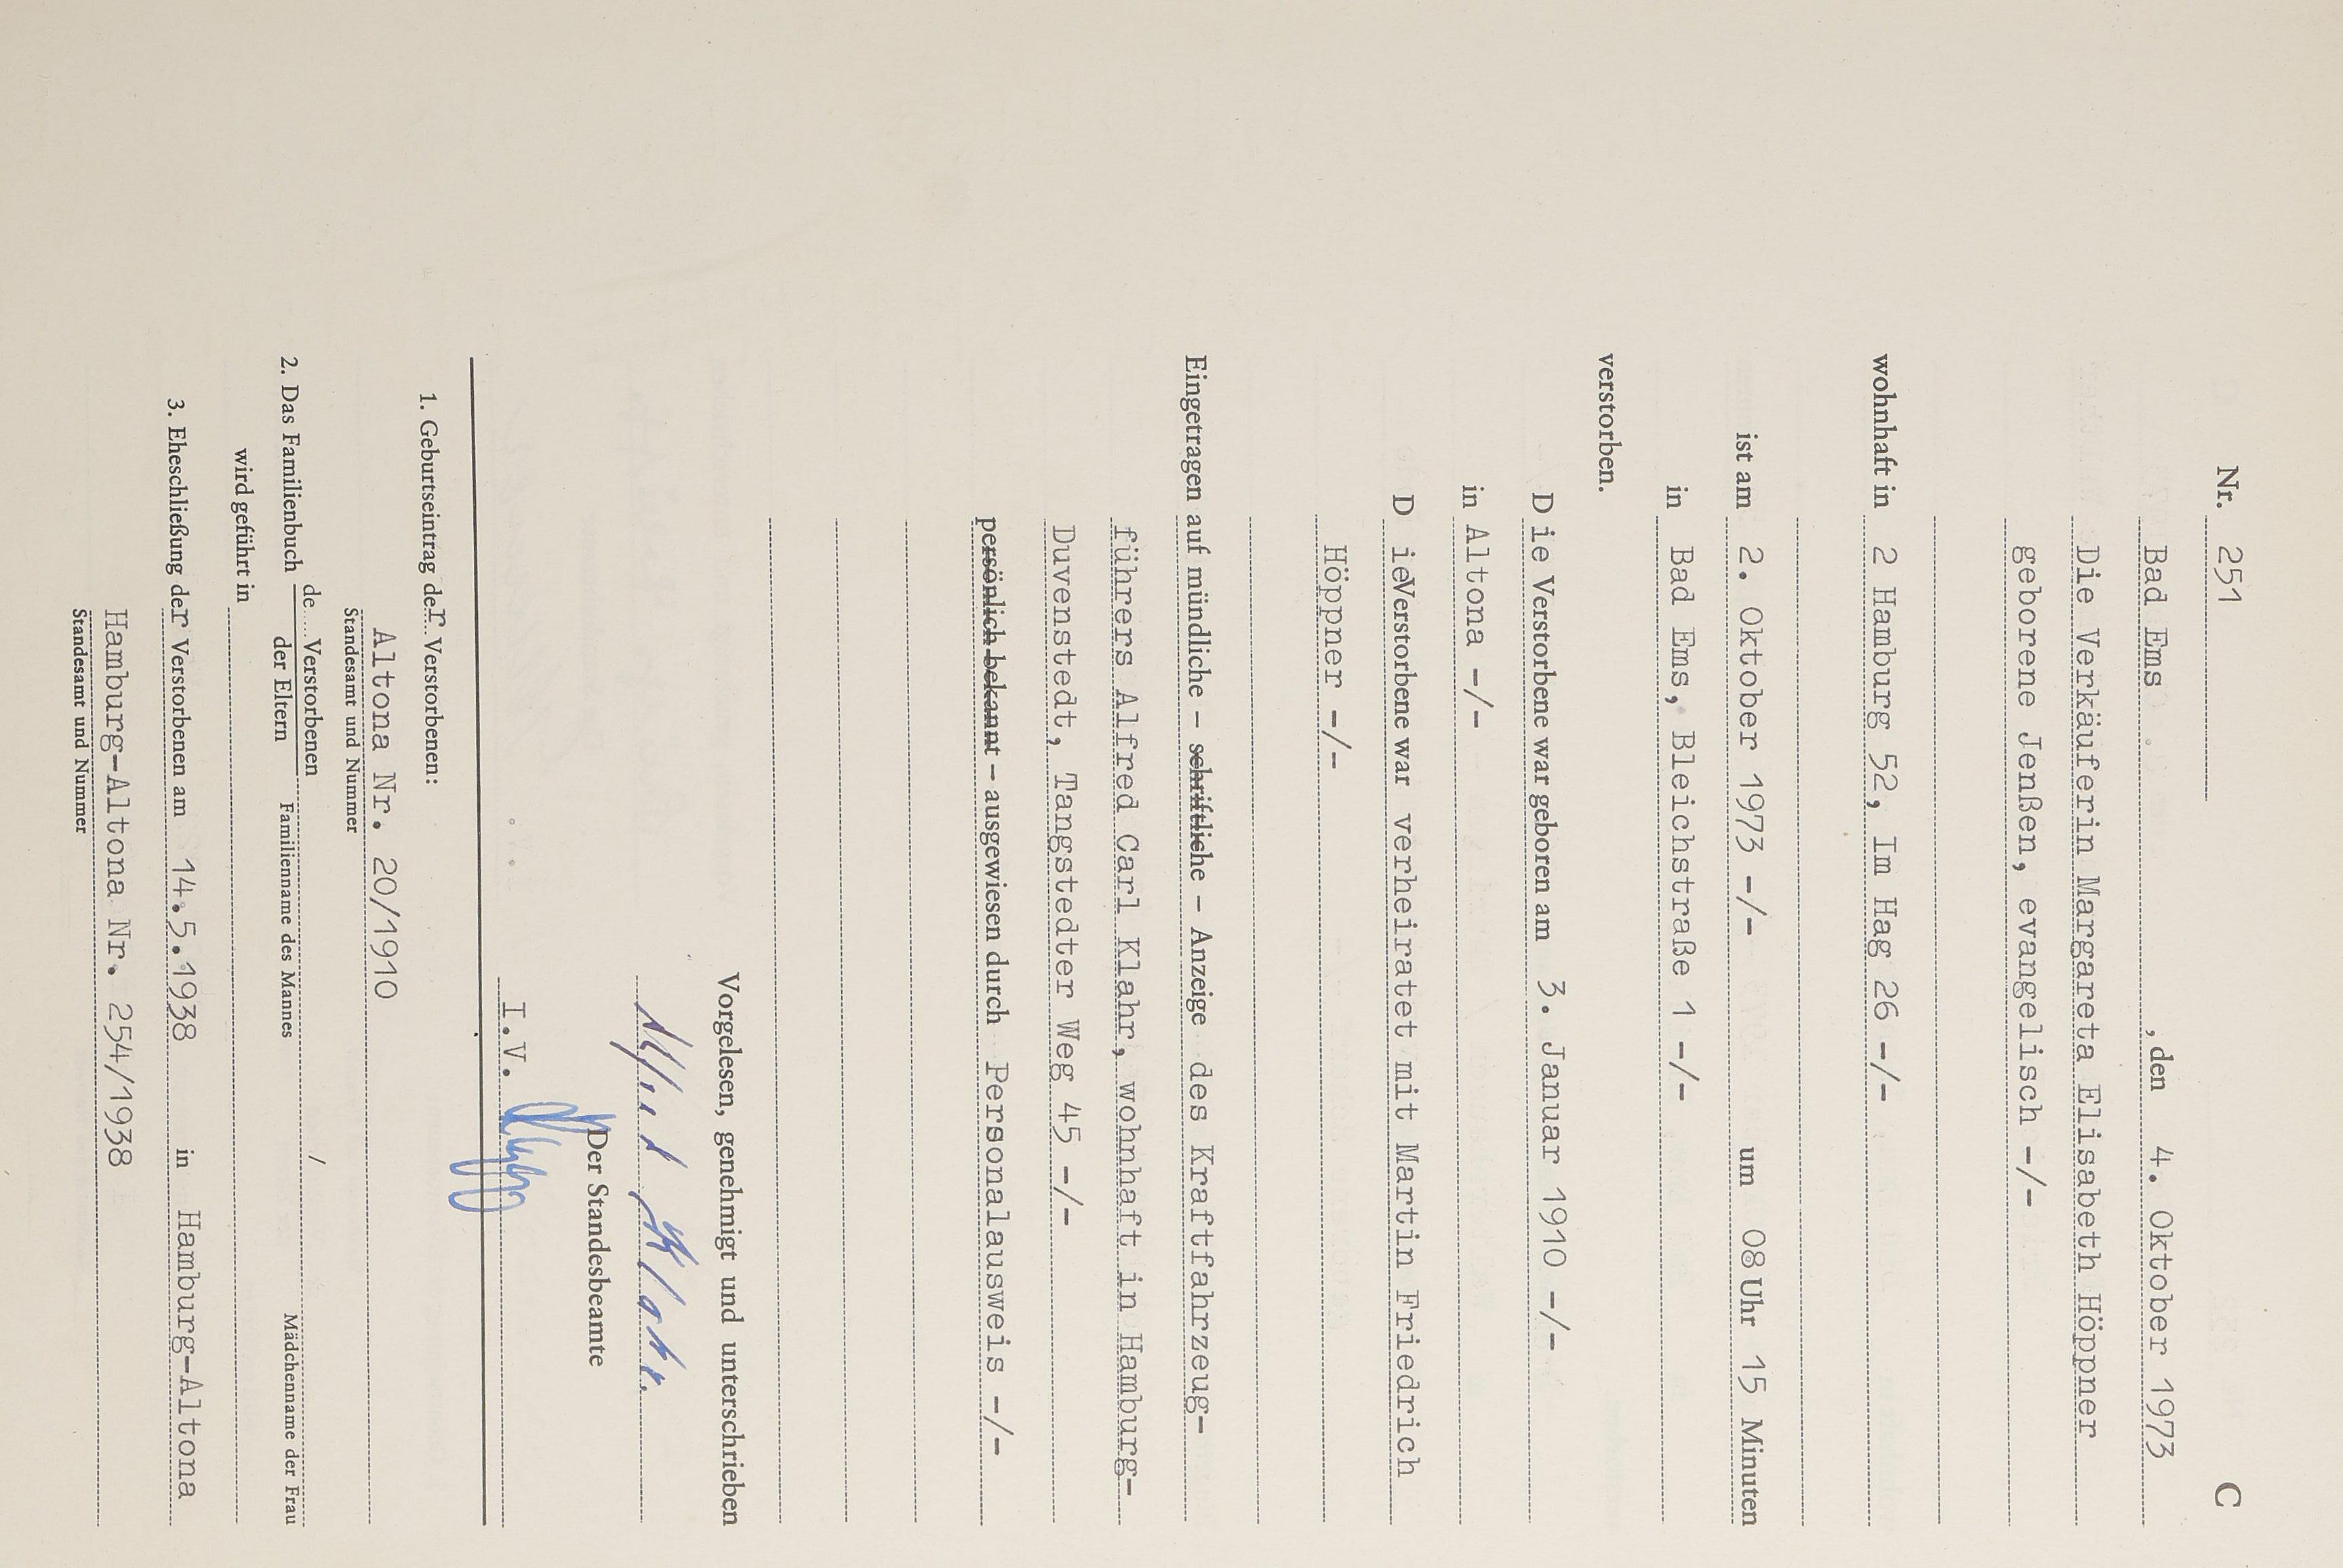 Nr. 251 C
Bad Ems , den 4. Oktober 1973
Die Verkäuferin Margareta Elisabeth Höppner
geborene Jenßen, evangelisch -/-
wohnhaft in 2 Hamburg 52, Im Hag 26 -/-
ist am 2. Oktober 1973 -/- um 08 Uhr 15 Minuten
in Bad Ems, Bleichstraße 1 -/-
verstorben.
Die Verstorbene war geboren am 3. Januar 1910 -/-
in Altona -/-
D ieVerstorbene war verheiratet mit Martin Friedrich
Höppner -/-
Eingetragen auf mündliche – schriftliche – Anzeige des Kraftfahrzeug-
führers Alfred Carl Klahr, wohnhaft in Hamburg-
Duvenstedt, Tangstedter Weg 45 -/-
persönlich bekannt – ausgewiesen durch Personalausweis -/-
Vorgelesen, genehmigt und unterschrieben
Alfred Klahr.
Der Standesbeamte
I.V.
1. Geburtseintrag der Verstorbenen:
Altona Nr. 20/1910
Standesamt und Nummer
de Verstorbenen /
2. Das Familienbuch der Eltern Familienname des Mannes Mädchenname der Frau
wird geführt in
3. Eheschließung der Verstorbenen am 14.5.1938 in Hamburg-Altona
Hamburg-Altona Nr. 254/1938
Standesamt und Nummer